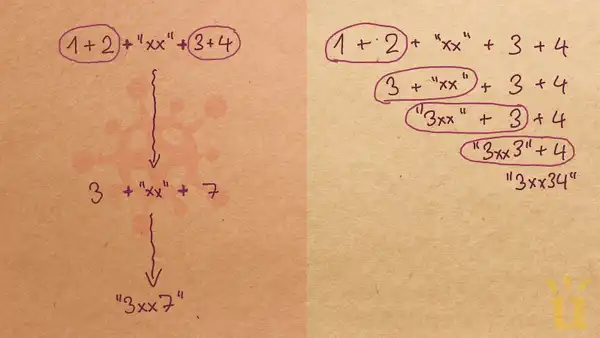 1 + 2 + "xx" + 3 + 4
3 + "xx" + 7
"3xx7"
1 + 2 + "xx" + 3 + 4
3 + "xx" + 3 + 4
"3xx" + 3 + 4
"3xx3" + 4
"3xx34"